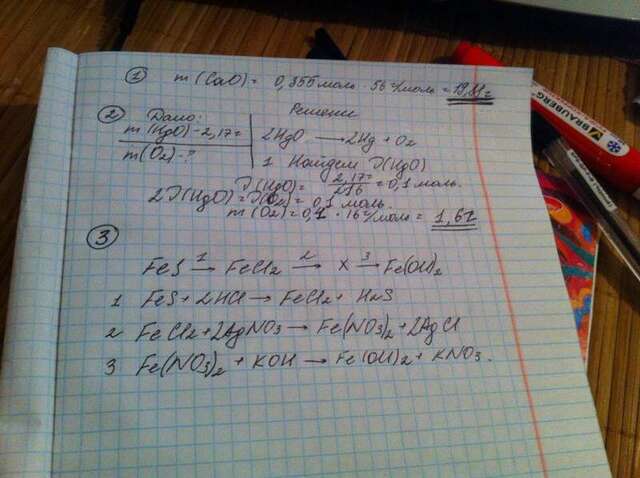 1 m(CaO) = 0,355 моль · 56 г/моль = 19,88г
2 Дано:
m(HgO) - 2,17г
m(O2) - ?
Решение
2HgO → 2Hg + O2
1 Найдем ν(HgO)
ν(HgO) = 2,17г / 216 = 0,1 моль.
2ν(HgO) = ν(O2) = 0,1 моль.
m(O2) = 0,1 · 16 г/моль = 1,6г
3
FeS 1→ FeCl2 2→ X 3→ Fe(OH)2
1 FeS + 2HCl → FeCl2 + H2S
2 FeCl2 + 2AgNO3 → Fe(NO3)2 + 2AgCl
3 Fe(NO3)2 + KOH → Fe(OH)2 + KNO3.
BRAUBERG